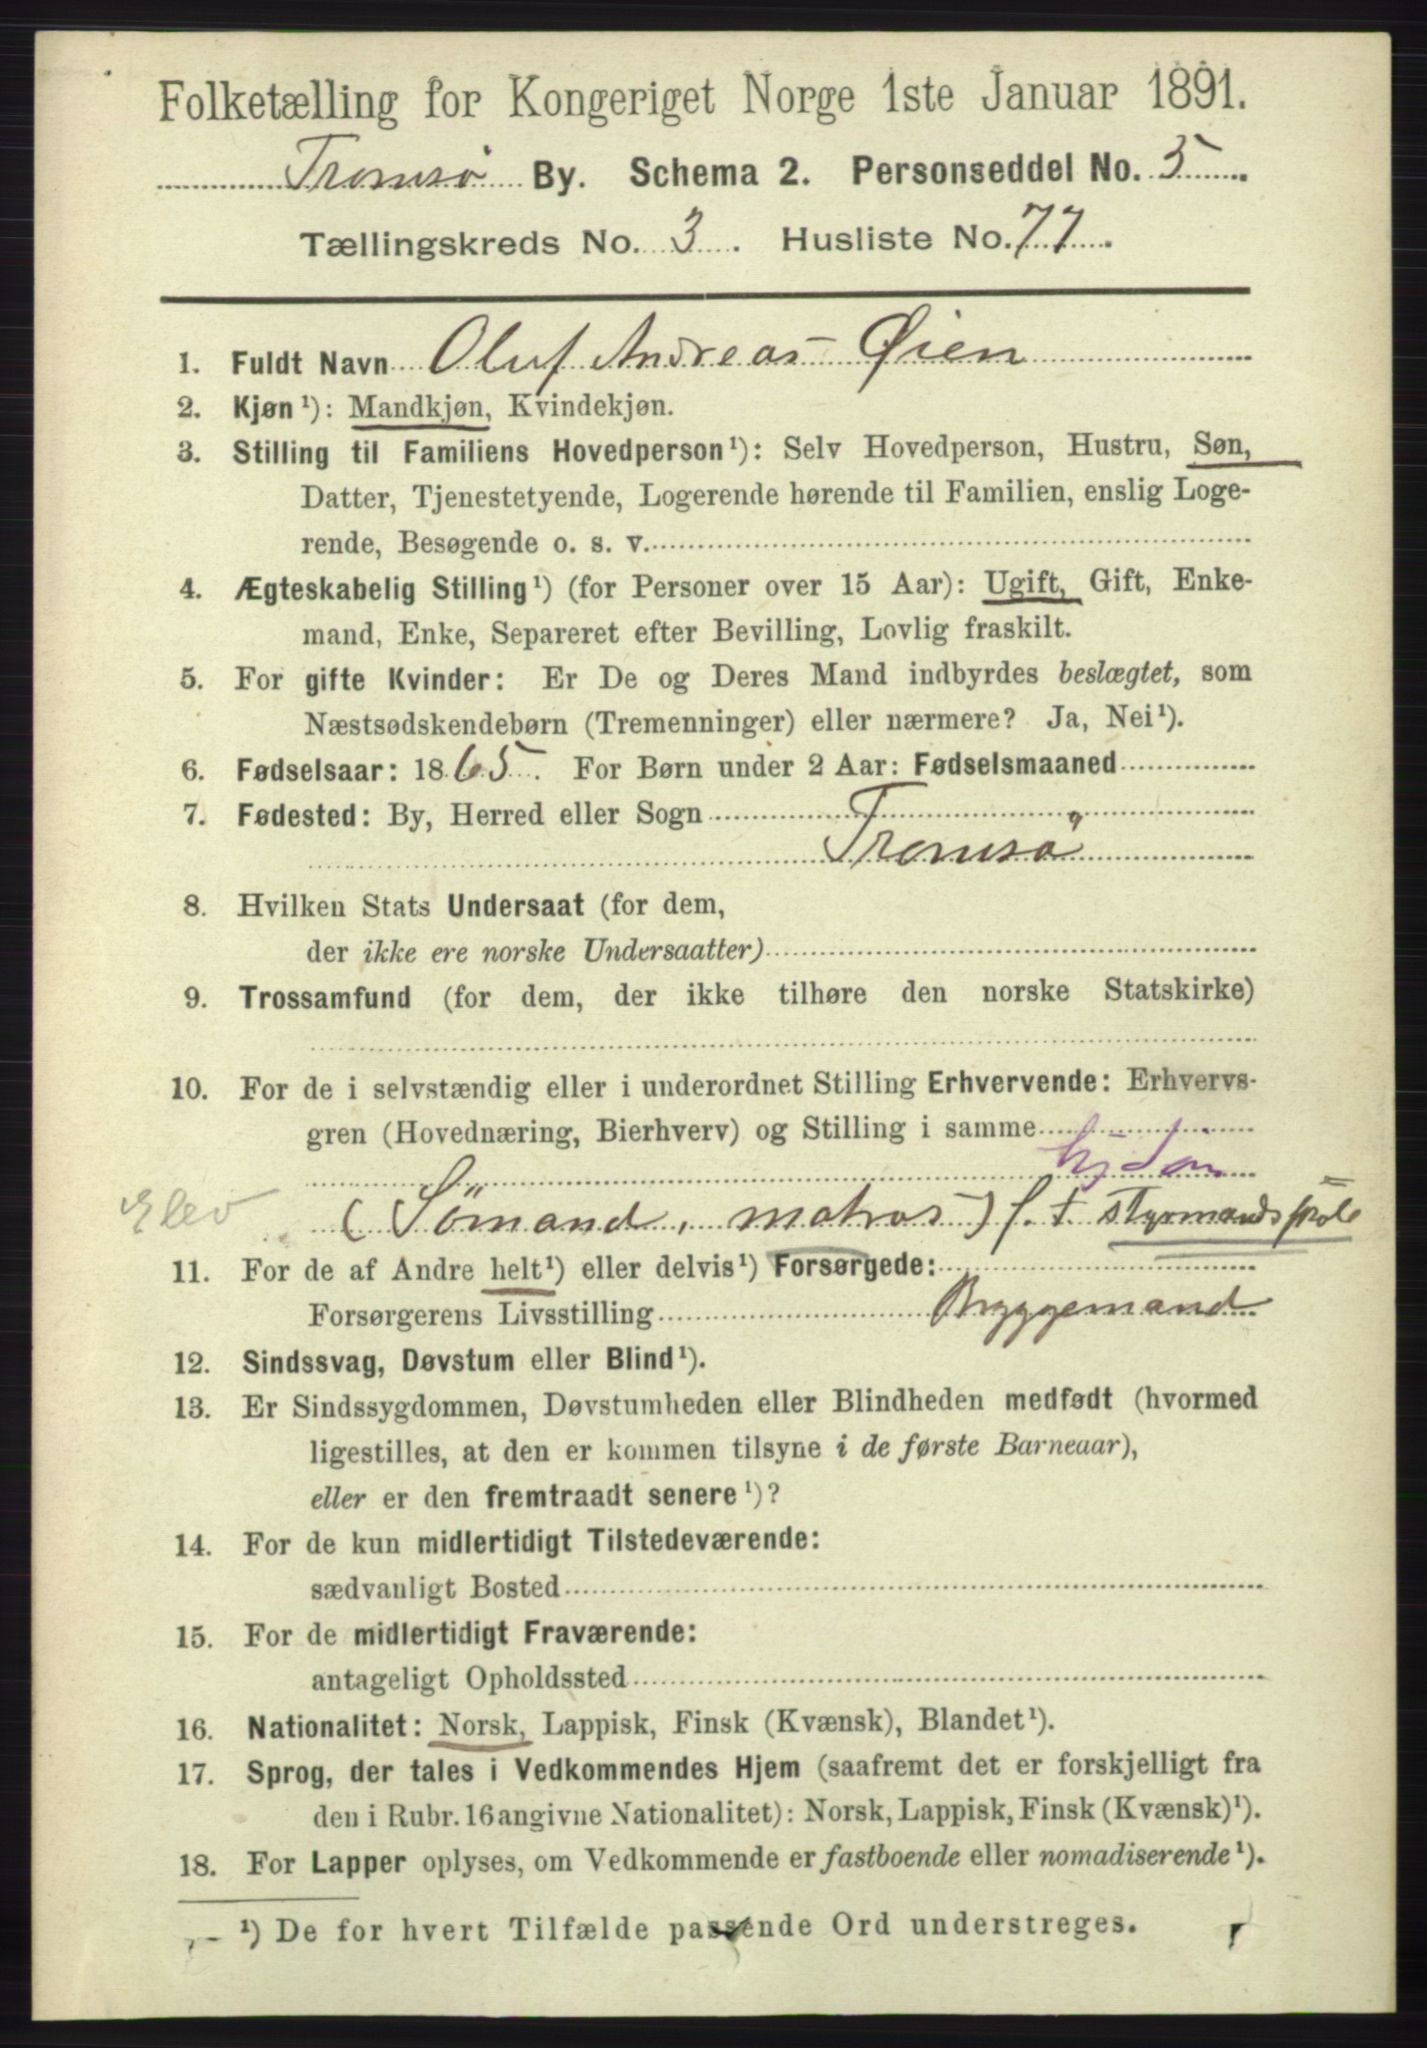 Folketælling for Kongeriget Norge 1ste Januar 1891.
Tromsø By. Schema 2. Personseddel No. 5.
Tællingskreds No. 3. Husliste No. 77.
1. Fuldt Navn Oluf Andreas Øien
2. Kjøn¹): Mandkjøn, Kvindekjøn.
3. Stilling til Familiens Hovedperson¹): Selv Hovedperson, Hustru, Søn,
Datter, Tjenestetyende, Logerende hørende til Familien, enslig Loge-
rende, Besøgende o. s. v.
4. Ægteskabelig Stilling¹) (for Personer over 15 Aar): Ugift, Gift, Enke-
mand, Enke, Separeret efter Bevilling, Lovlig fraskilt.
5. For gifte Kvinder: Er De og Deres Mand indbyrdes beslægtet, som
Næstsødskendebørn (Tremenninger) eller nærmere? Ja, Nei¹).
6. Fødselsaar: 1865. For Børn under 2 Aar: Fødselsmaaned
7. Fødested: By, Herred eller Sogn
Tromsø
8. Hvilken Stats Undersaat (for dem,
der ikke ere norske Undersaatter)
9. Trossamfund (for dem, der ikke tilhøre den norske Statskirke)
10. For de i selvstændig eller i underordnet Stilling Erhvervende: Erhvervs-
gren (Hovednæring, Bierhverv) og Stilling i samme
Elev (Sömand, matros) f. t styrmandsskole
11. For de af Andre helt¹) eller delvis¹) Forsørgede:
Forsørgerens Livsstilling Bryggemand
12. Sindssvag, Døvstum eller Blind¹).
13. Er Sindssygdommen, Døvstumheden eller Blindheden medfødt (hvormed
ligestilles, at den er kommen tilsyne i de første Barneaar),
eller er den fremtraadt senere¹)?
14. For de kun midlertidigt Tilstedeværende:
sædvanligt Bosted
15. For de midlertidigt Fraværende:
antageligt Opholdssted
16. Nationalitet: Norsk, Lappisk, Finsk (Kvænsk), Blandet¹).
17. Sprog, der tales i Vedkommendes Hjem (saafremt det er forskjelligt fra
den i Rubr. 16 angivne Nationalitet): Norsk, Lappisk, Finsk (Kvænsk)¹).
18. For Lapper oplyses, om Vedkommende er fastboende eller nomadiserende¹).
¹) De for hvert Tilfælde passende Ord understreges.